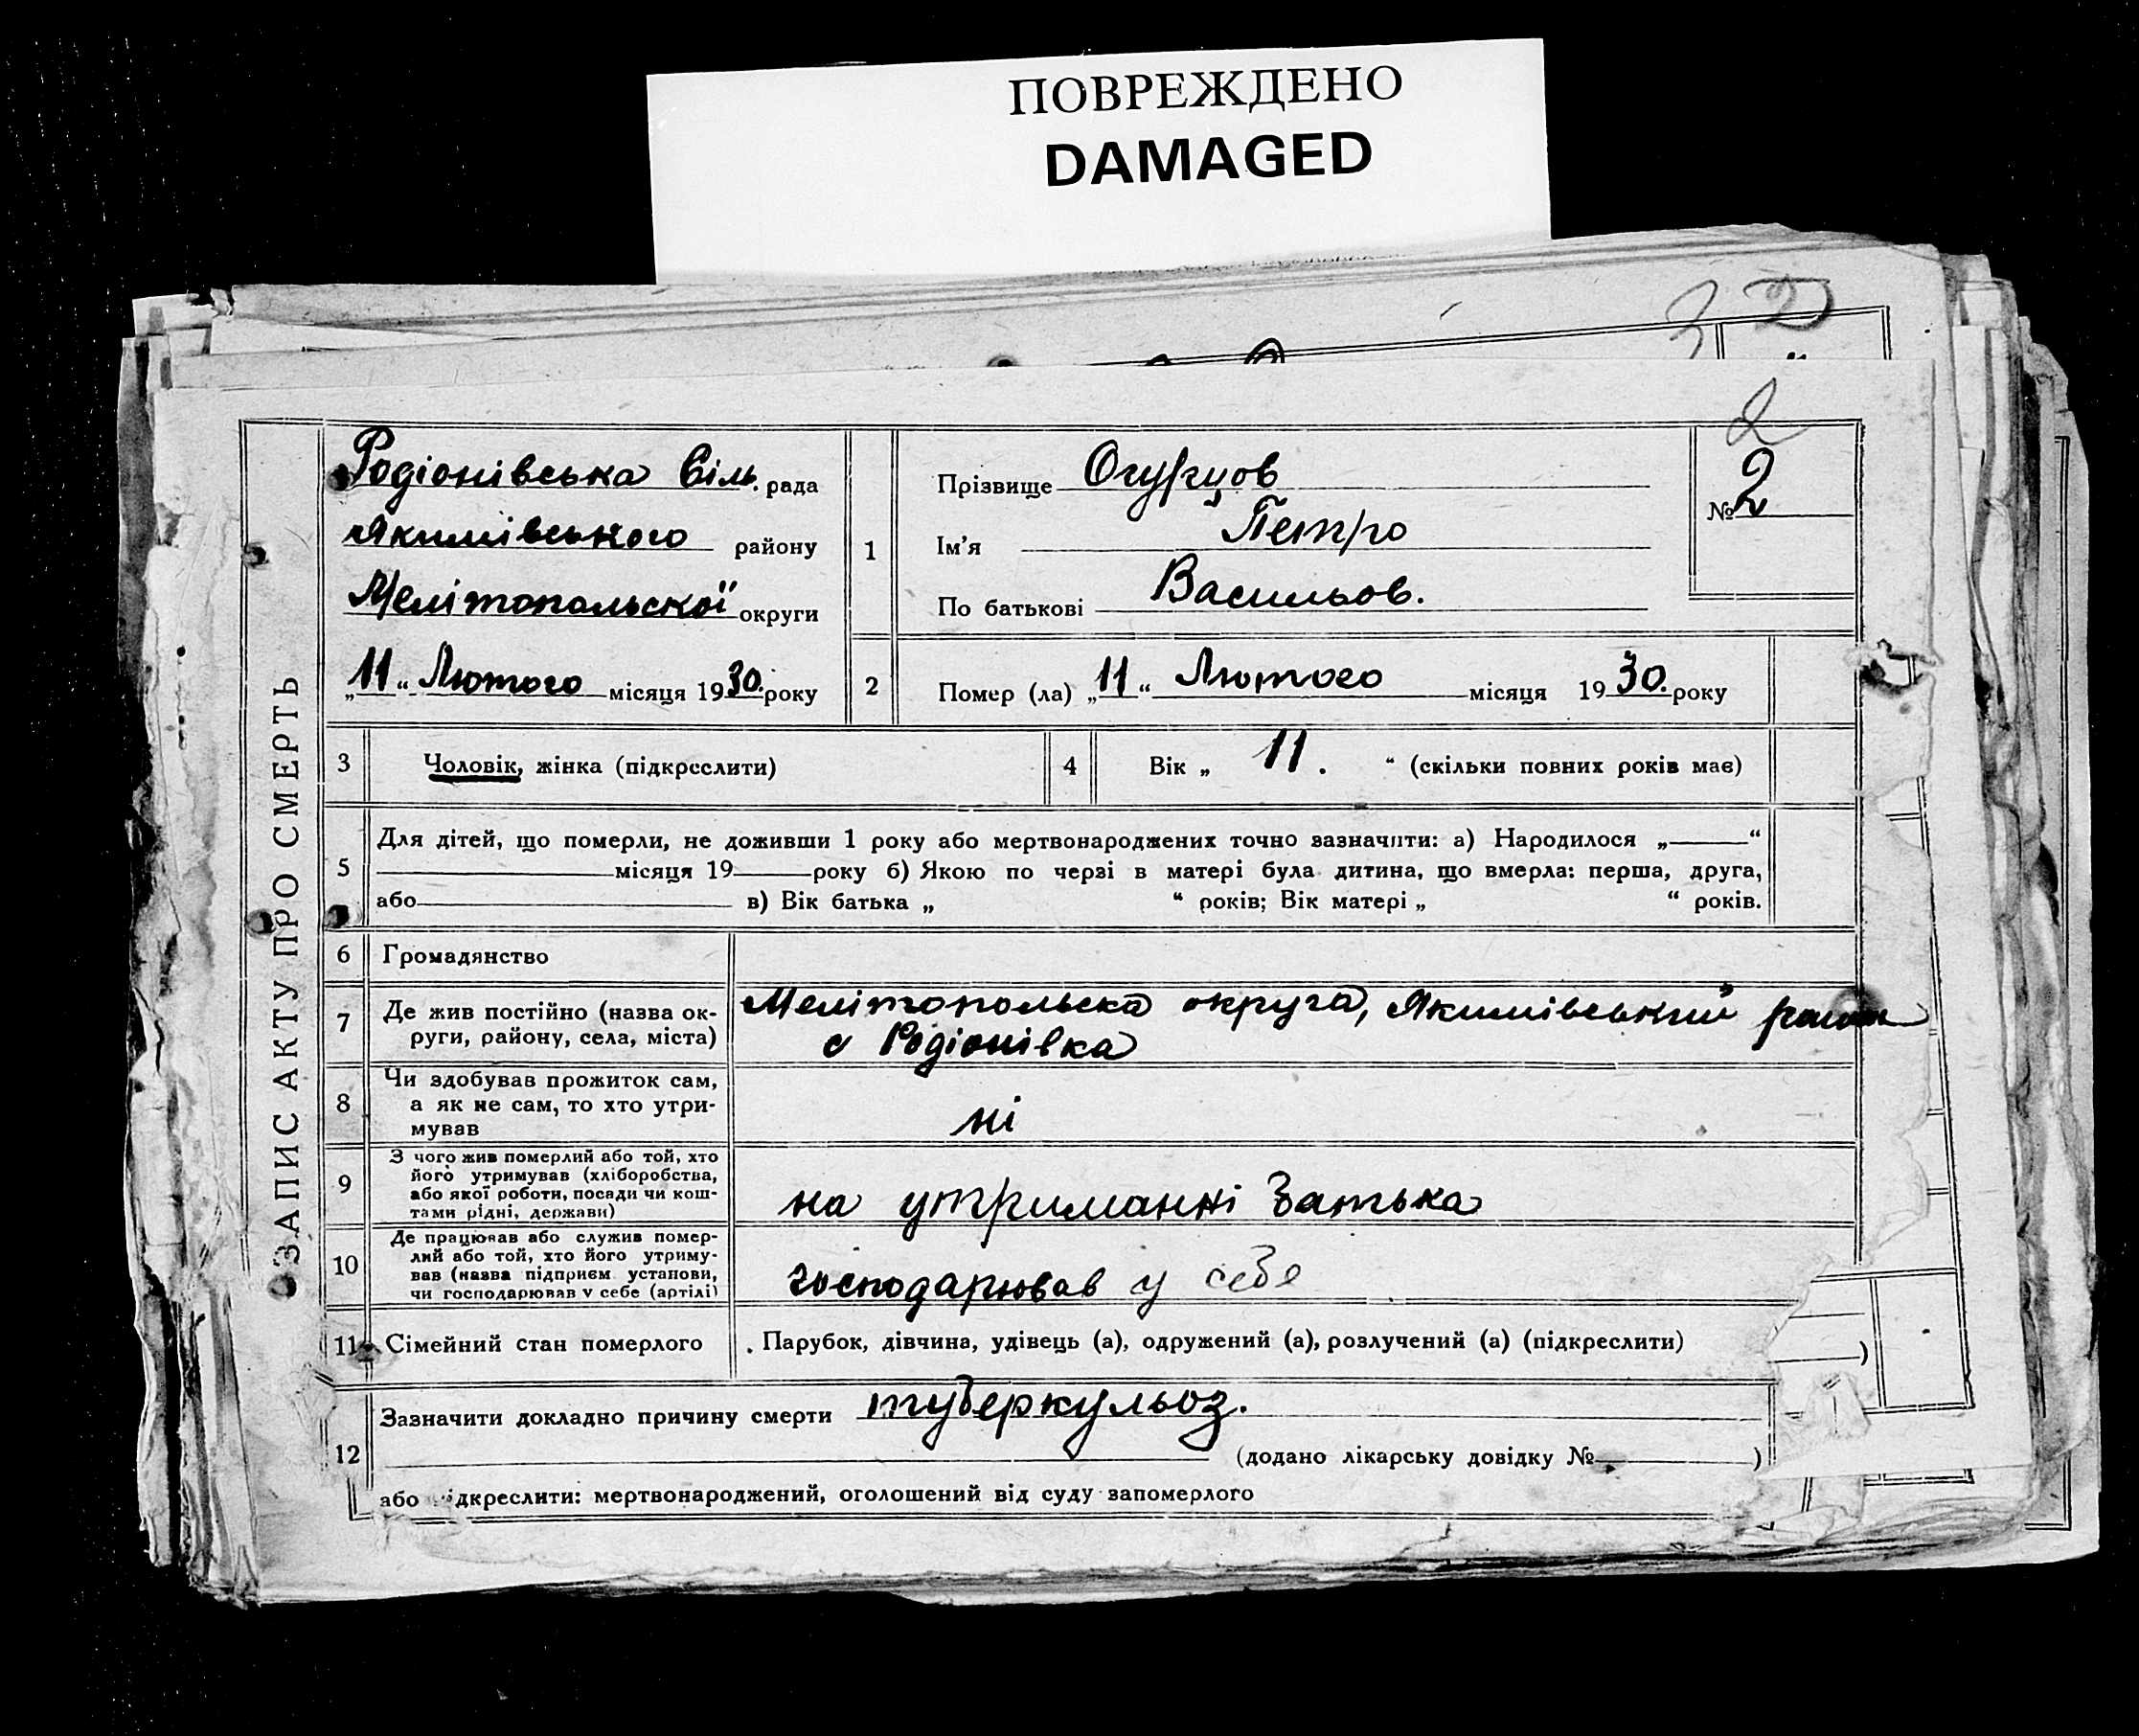 ПОВРЕЖДЕНО
DAMAGED
32
2
ЗАПИС АКТУ ПРО СМЕРТЬ
Родіонівська Сіль. рада
Якимівського району
Мелітопольскої округи
„11“ Лютого місяця 1930. року
1
Прізвище Огурцов
Ім’я Петро
По батькові Васильов.
№ 2
2
Помер (ла) „11“ Лютого місяця 1930. року
3 Чоловік, жінка (підкреслити)
4 Вік „ 11. “ (скільки повних років має)
5
Для дітей, що померли, не доживши 1 року або мертвонароджених точно зазначити: а) Народилося „ “
місяця 19 року б) Якою по черзі в матері була дитина, що вмерла: перша, друга,
або в) Вік батька „ “ років; Вік матері „ “ років.
6 Громадянство
7
Де жив постійно (назва ок-
руги, району, села, міста)
Мелітопольска округа, Якимівський район
с Родіонівка
8
Чи здобував прожиток сам,
а як не сам, то хто утри-
мував
ні
9
З чого жив померлий або той, хто
його утримував (хліборобства,
або якої роботи, посади чи кош-
тами рідні, держави)
на утриманні батька
10
Де працював або служив помер-
лий або той, хто його утриму-
вав (назва підприєм установи,
чи господарював у себе (артілі)
господарював у себе
11 Сімейний стан померлого
Парубок, дівчина, удівець (а), одружений (а), розлучений (а) (підкреслити)
)
12
Зазначити докладно причину смерти туберкульоз.
(додано лікарську довідку № )
або дкреслити: мертвонароджений, оголошений від суду запомерлого